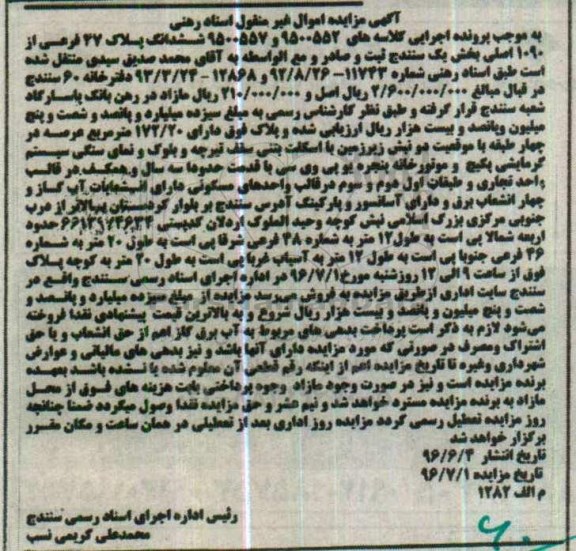 آگهی مزایده اموال غیر منقول اسناد رهنی
به موجب پرونده اجرایی کلاسه های ۹۵۰۰۵۵۲ و ۹۵۰۰۵۵۷ ششدانگ پلاک ۲۷ فرعی از
۱۰۹۰ اصلی بخش یک سنندج ثبت و صادر و مع الواسطه به آقای محمد صدیق سیدی منتقل شده
است طبق اسناد رهنی شماره ۱۱۷۴۳-۹۲/۸/۲۶ و ۱۲۸۶۸ - ۹۳/۳/۲۴ دفترخانه ۶۰ سنندج
در قبال مبالغ ۲/۶۰۰/۰۰۰/۰۰۰ ریال اصل و ۲۱۰/۰۰۰/۰۰۰ ریال مازاد در رهن بانک پاسارگاد
شعبه سنندج قرار گرفته و طبق نظر کارشناس رسمی به مبلغ سیزده میلیارد و پانصد و شصت و پنج
میلیون وپانصد و بیست هزار ریال ارزیابی شده و پلاک فوق دارای ۱۷۲/۲۰ مترمربع عرصه در
چهار طبقه با موقعیت دو نبش زیرزمین با اسکلت بتنی سقف تیرچه و بلوک و نمای سنگی سیستم
گرمایشی پکیج و موتورخانه پنجره یو پی وی سی با قدمت حدودا سه سال و همکف در قالب
واحد تجاری و طبقات اول دوم و سوم در قالب واحدهای مسکونی دارای انشعابات آب گاز و
چهار انشعاب برق و دارای آسانسور و پارکینگ آدرس سنندج بر بلوار کردستان بالاتر از درب
جنوبی مرکزی بزرگ اسلامی نبش کوچه وحید الملوک اردلان کدپستی ۶۶۱۳۹۷۴۶۳۴ حدود
اربعه شمالا پی است به طول ۱۲ متر به شماره ۲۸ فرعی شرقا پی است به طول ۲۰ متر به شماره
۲۶ فرعی جنوبا پی است به طول ۱۲ متر به آسیاب غربا پی است به طول ۲۰ متر به کوچه پلاک
فوق از ساعت ۹ الی ۱۲ روزشنبه مورخ ۹۶/۷/۱ در اداره اجرای اسناد رسمی سنندج واقع در
سنندج سایت اداری ازطریق مزایده به فروش می‌رسد مزایده از مبلغ سیزده میلیارد و پانصد و
شصت و پنج میلیون و پانصد و بیست هزار ریال شروع و به بالاترین قیمت پیشنهادی نقدا فروخته
می‌شود لازم به ذکر است پرداخت بدهی های مربوط به آب برق گاز اعم از حق انشعاب و یا حق
اشتراک ومصرف در صورتی که مورد مزایده دارای آنها باشد و نیز بدهی های مالیاتی و عوارض
شهرداری وغیره تا تاریخ مزایده اعم از اینکه رقم قطعی آن معلوم شده یا نشده باشد بعهده
برنده مزایده است و نیز در صورت وجود مازاد وجوه پرداختی بابت هزینه های فوق از محل
مازاد به برنده مزایده مسترد خواهد شد و نیم عشر و حق مزایده نقدا وصول میگردد ضمنا چنانچه
روز مزایده تعطیل رسمی گردد مزایده روز اداری بعد از تعطیلی در همان ساعت و مکان مقرر
برگزار خواهد شد
تاریخ انتشار ۹۶/۶/۴
تاریخ مزایده ۹۶/۷/۱
م الف ۱۲۸۲
رئیس اداره اجرای اسناد رسمی سنندج
محمدعلی کریمی نسب